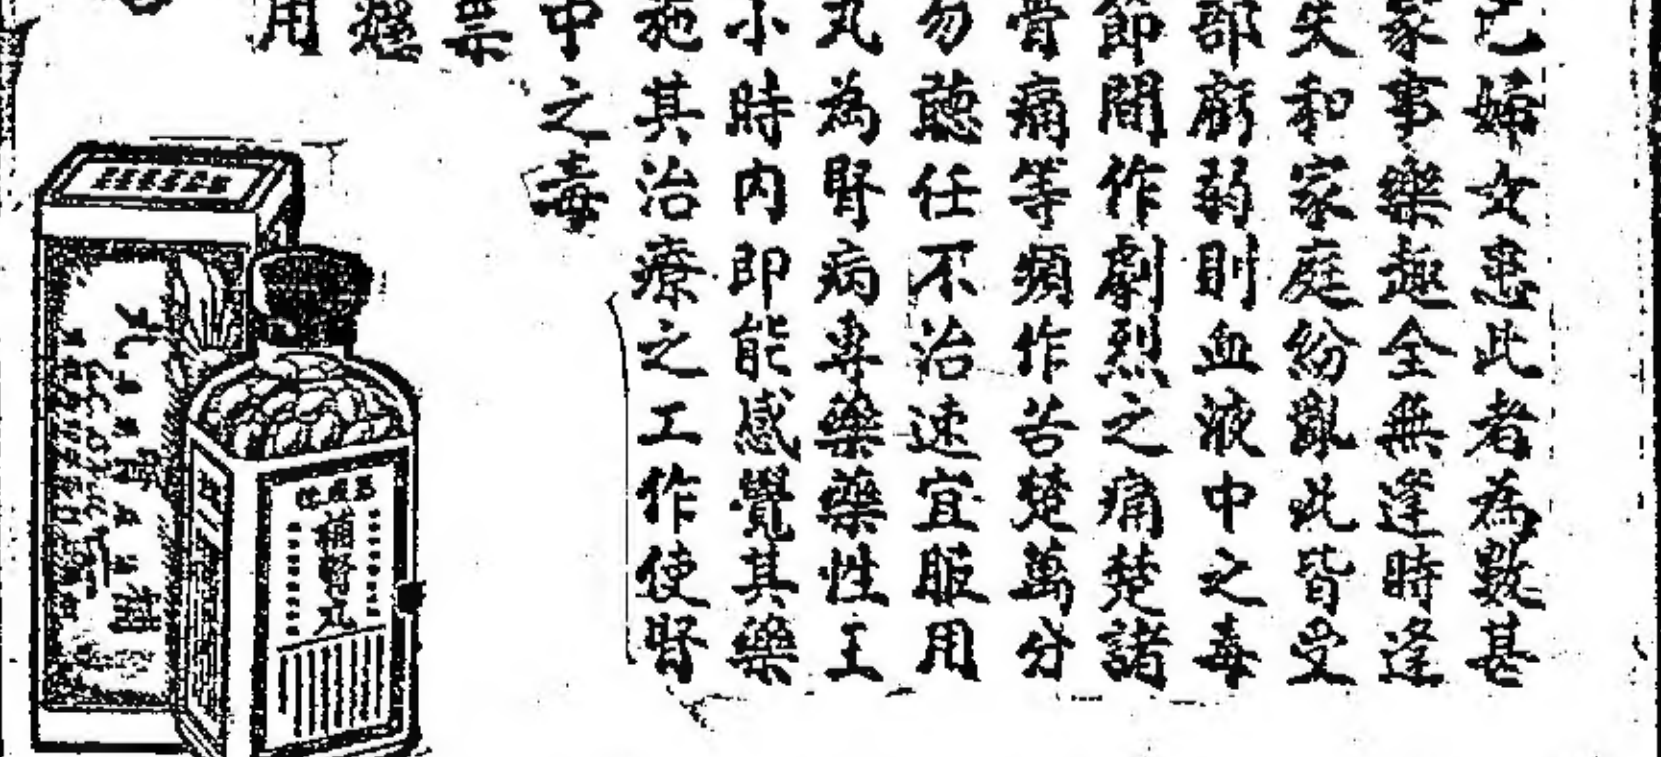 已婦女患此者為數甚
家事樂趣全無逢時逢
失和家庭紛亂此皆受
部虧弱則血液中之毒
節間作劇烈之痛楚諸
骨痛等須作苦楚萬分
勿聽任不治速宜服用
丸為腎病專藥藥性王
小時內即能感覺其藥
施其治療之工作使腎
中之毒
票
用
補腎丸